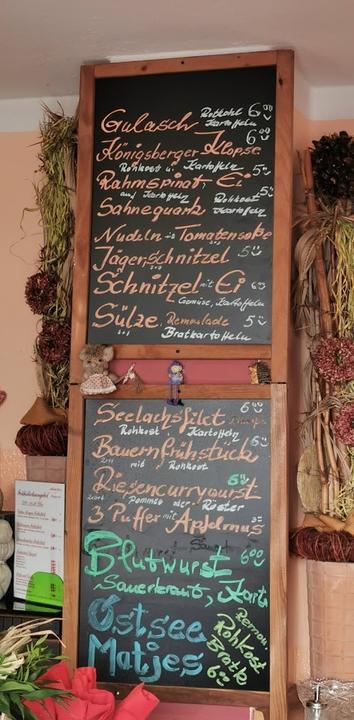 Gulasch Rotkohl Kartoffeln 6,00
Königsberger Klopse 6,00
Rohkost u. Kartoffeln
Rahmspinat, Ei 5
auf Kartoffeln
Sahnequark Rohkost Kartoffeln 5
Nudeln in Tomatensoße
Jägerschnitzel 5
Schnitzel mit Ei 6
Gemüse, Kartoffeln
Sülze, Remolade 5
Bratkartoffeln
Seelachsfilet 6
Rohkost Kartoffeln
Bauernfrühstück 6
mit Rohkost
Riesencurrywurst 6
Pommes oder Röster
3 Puffer mit Apfelmus 3
Blutwurst 6,00
Sauerkraut, Kart
Ostsee
Matjes
Remou
Rohkost
Bratk
6